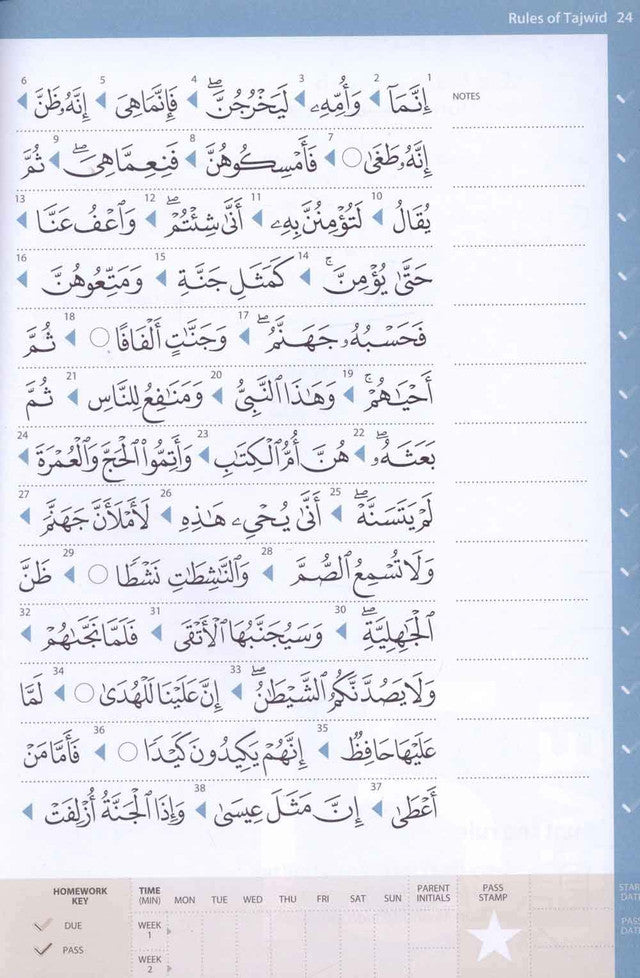 Rules of Tajwid 24
NOTES
1 إِنَّمَآ 2 وَأُمِّهِۦ 3 لَيَخْرُجُنَّۖ 4 فَإِنَّمَاهِىَ 5 إِنَّهُۥظَنَّ 6
إِنَّهُۥطَغَىٰ ۝ 7 فَأَمْسِكُوهُنَّ 8 فَنِعِمَّاهِىَۖ 9 ثُمَّ
يُقَالُ 10 لَتُؤْمِنُنَّ بِهِۦ 11 أَنَّىٰ شِئْتُمْۖ 12 وَٱعْفُ عَنَّا 13
حَتَّىٰ يُؤْمِنَّۚ 14 كَمَثَلِ جَنَّةِۭ 15 وَمَتِّعُوهُنَّ 16
فَحَسْبُهُۥ جَهَنَّمُۖ 17 وَجَنَّٰتٍ أَلْفَافًا ۝ 18 ثُمَّ
أَحْيَٰهُمْۚ 19 وَهَٰذَا ٱلنَّبِىُّ 20 وَمَنَٰفِعُ لِلنَّاسِ 21 ثُمَّ
بَعَثَهُۥۖ 22 هُنَّ أُمُّ ٱلْكِتَٰبِ 23 وَأَتِمُّوا۟ ٱلْحَجَّ وَٱلْعُمْرَةَ 24
لَمْ يَتَسَنَّهْۖ 25 أَنَّىٰ يُحْىِۦ هَٰذِهِ 26 لَأَمْلَأَنَّ جَهَنَّمَ 27
وَلَا تُسْمِعُ ٱلصُّمَّ 28 وَٱلنَّٰشِطَٰتِ نَشْطًا ۝ 29 ظَنَّ
ٱلْجَٰهِلِيَّةِۖ 30 وَسَيُجَنَّبُهَا ٱلْأَتْقَى 31 فَلَمَّا نَجَّىٰهُمْ 32
وَلَا يَصُدَّنَّكُمُ ٱلشَّيْطَٰنُۖ 33 إِنَّ عَلَيْنَا لَلْهُدَىٰ ۝ 34 لَمَّا
عَلَيْهَا حَافِظٌ 35 إِنَّهُمْ يَكِيدُونَ كَيْدًا ۝ 36 فَأَمَّا مَنْ
أَعْطَىٰ 37 إِنَّ مَثَلَ عِيسَىٰ 38 وَإِذَا ٱلْجَنَّةُ أُزْلِفَتْ
HOMEWORK KEY
DUE
PASS
TIME (MIN) MON TUE WED THU FRI SAT SUN PARENT INITIALS PASS STAMP
WEEK 1
WEEK 2